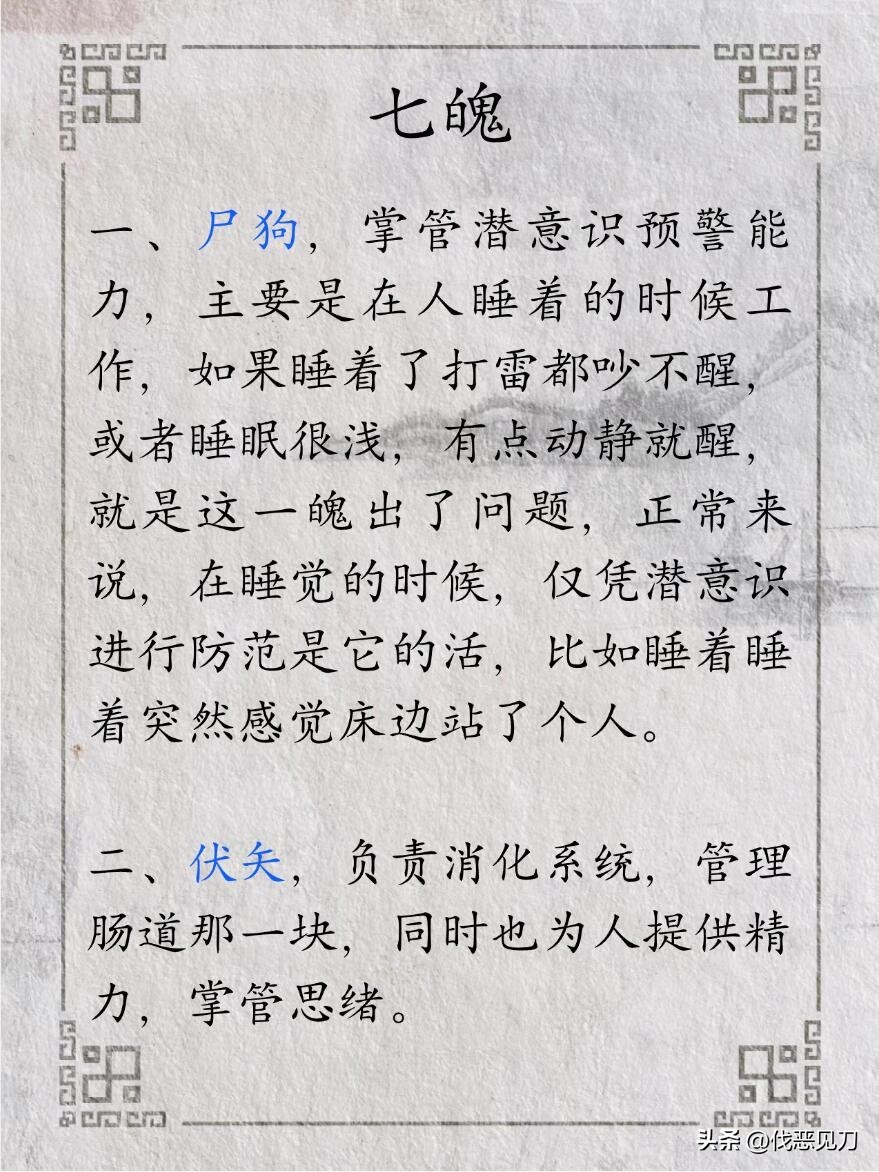 七魄
一、尸狗，掌管潜意识预警能
力，主要是在人睡着的时候工
作，如果睡着了打雷都吵不醒，
或者睡眠很浅，有点动静就醒，
就是这一魄出了问题，正常来
说，在睡觉的时候，仅凭潜意识
进行防范是它的活，比如睡着睡
着突然感觉床边站了个人。
二、伏矢，负责消化系统，管理
肠道那一块，同时也为人提供精
力，掌管思绪。
头条 @伐恶见刀